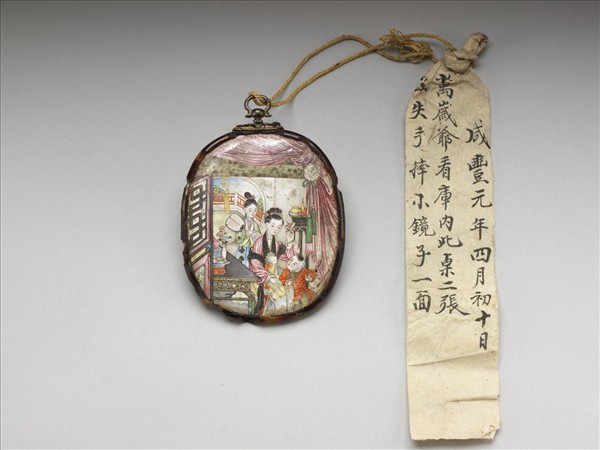 咸豐元年四月初十日
萬歲爺看庫內此桌二張
失手摔小鏡子一面